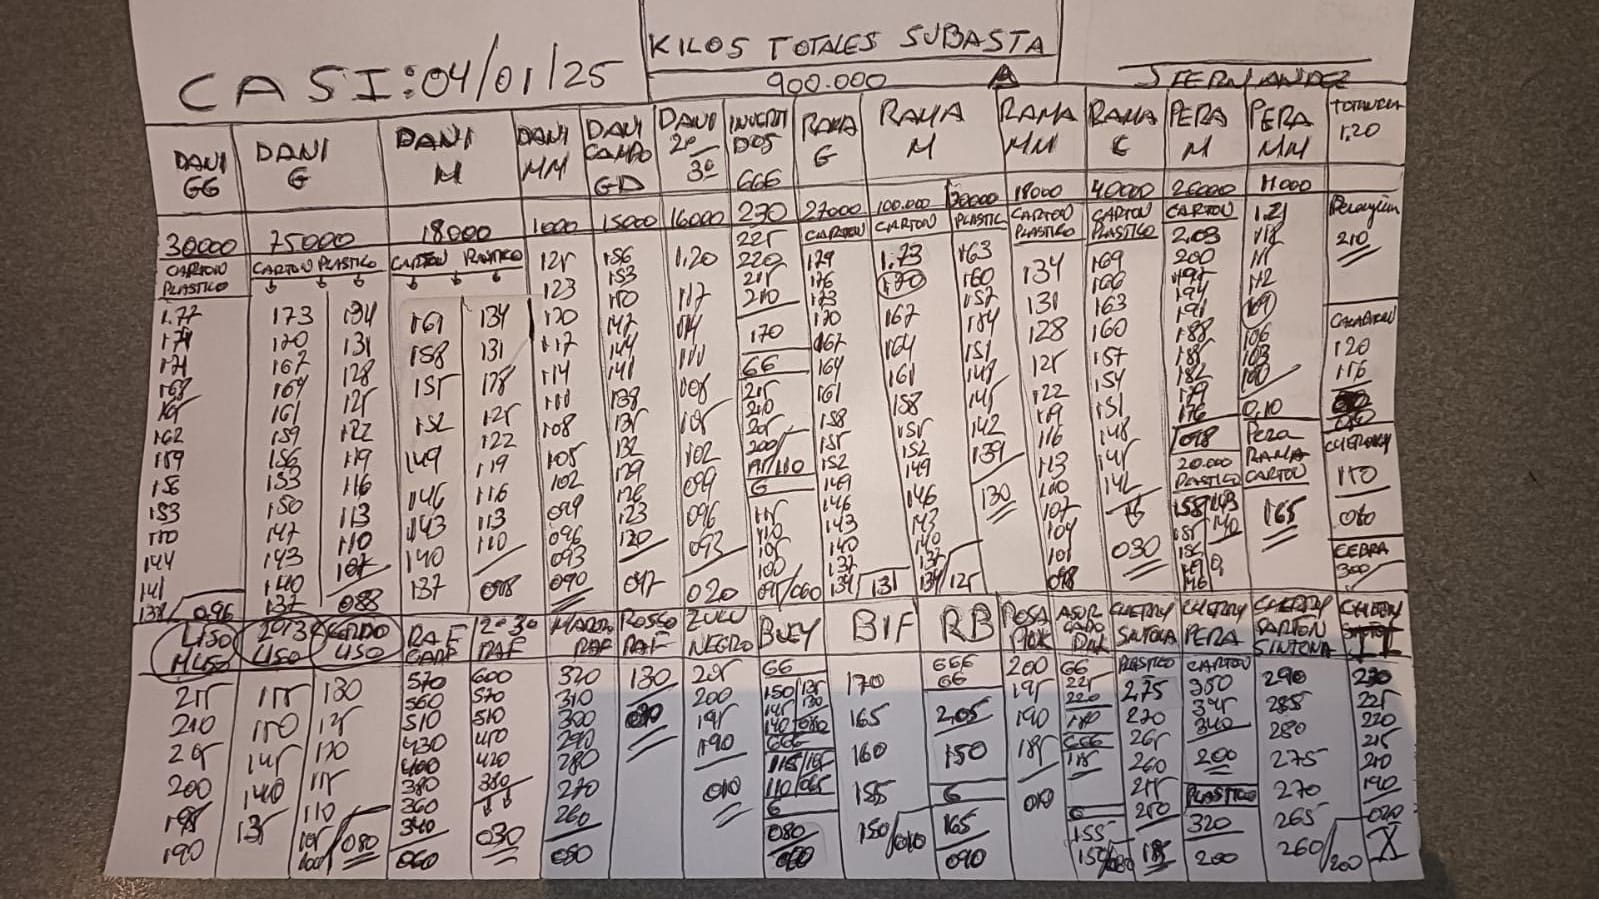 KILOS TOTALES SUBASTA
CASI: 04/01/25
900.000
J FERNANDEZ
DANI GG
DANI G
DANI M
DANI MM
DANI CAMPO GD
DANI 20/30
RAMA G
RAMA M
RAMA MM
RAMA C
PERA M
PERA MM
1.20
30000 75000 18000 1000 15000 16000 27000 100.000 18000 40000 11000
CARTON PLASTICO
1.77
171
168
165
162
159
156
153
150
144
141
138/096
CARTON PLASTICO
173 134
170 131
167 128
164 125
161 122
159 119
156 116
153 113
150 110
147 107
143 088
140
137
CARTON PLASTICO
161 134
158 131
155 128
152 125
149 122
146 119
143 116
140 113
137 110
098
125
123
120
117
114
108
105
102
099
096
093
090
156
153
150
147
144
141
138
135
132
129
126
123
120
047
1.20
117
114
111
108
105
102
099
096
093
020
GGG
230
225
220
215
210
170
GG
215
210
205
200
195/110
G
115
110
105
100
095/060
CARTON
179
176
173
170
167
164
161
158
155
152
149
146
143
140
137
134/131
CARTON
1.73
170
167
164
161
158
155
152
149
146
143
140
137
134/125
163
160
157
154
151
148
145
142
139
130
CARTON PLASTICO
134
131
128
125
122
119
116
113
110
107
104
101
098
CARTON PLASTICO
169
166
163
160
157
154
151
148
145
142
030
CARTON
2.03
200
197
194
191
188
185
182
179
176
098
20.000
PLASTICO
1.21
118
115
112
109
106
103
100
0,10
PERA RAMA CARTON
165
210
120
116
CHERRY
150
080
CEBRA
300
LISO
MLISO
215
210
205
200
195
190
LISO
155
150
145
140
135
GORDO LISO
130
125
120
115
110
105
100/080
RAF
570
560
510
430
400
380
360
340
060
20 30 RAF
600
570
510
450
420
380
030
RAF
320
310
300
290
280
270
260
050
ROSSO RAF
130
ZULU NEGRO
205
200
195
190
010
BUEY
GG
150/135
145/130
140/080
GGG
115/105
110/065
G
080
BIF
170
165
160
155
150/010
RB
GGG
GG
2.05
150
G
165
090
ROSA PINK
200
195
190
185
010
GG
225
220
180
GGG
185
G
155
CHERRY SINTONA
PLASTICO
2.75
270
265
260
255
250
185
CHERRY PERA
CARTON
350
345
340
200
PLASTICO
320
200
CHERRY CARTON SINTONA
290
285
280
275
270
265
260/200
230
225
220
215
210
190
020
X